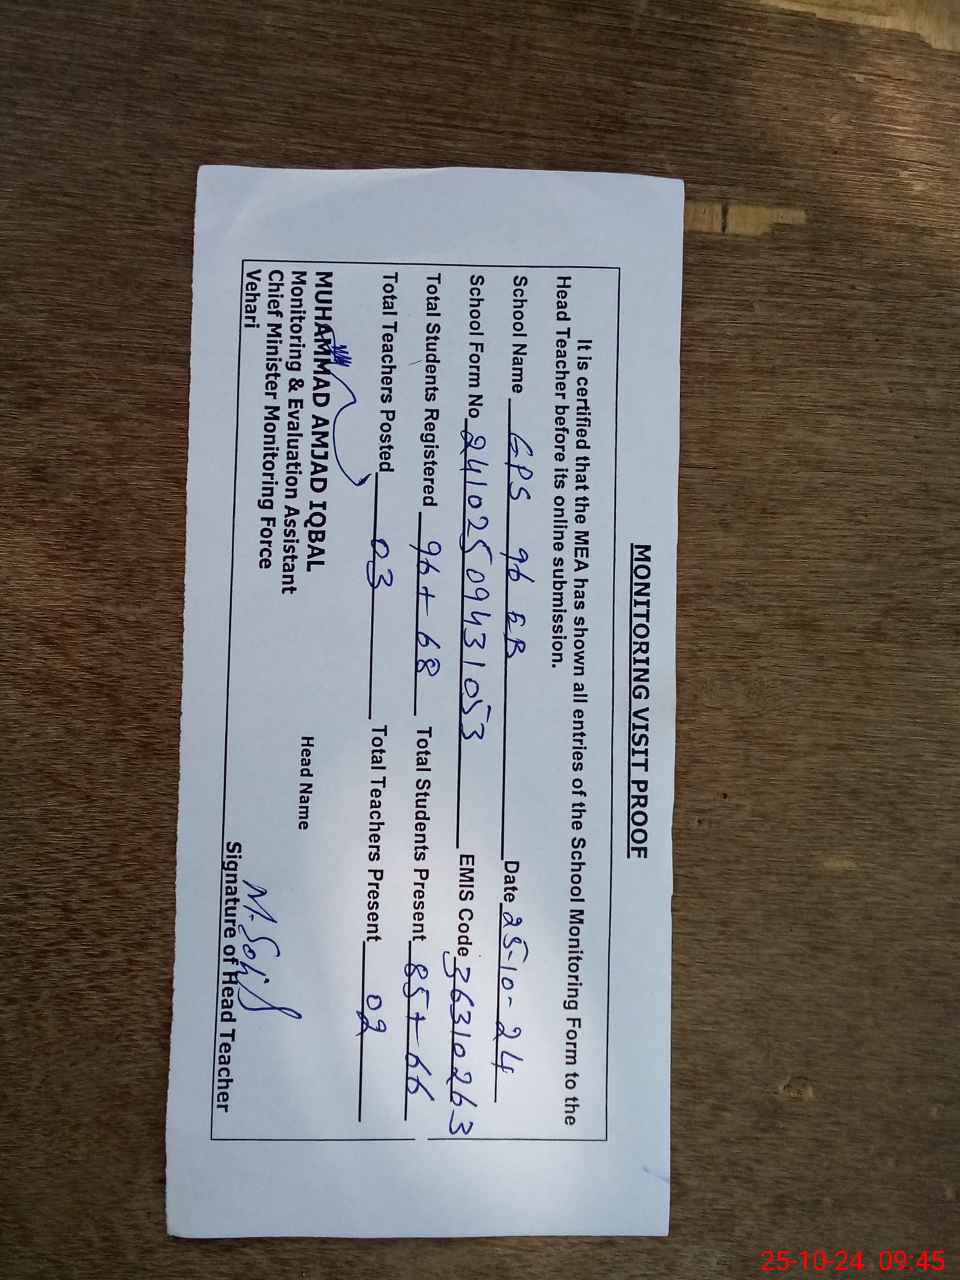 MONITORING VISIT PROOF
It is certified that the MEA has shown all entries of the School Monitoring Form to the
Head Teacher before its online submission.
School Name GPS 96 EB Date 25-10-24
School Form No 24102509431053 EMIS Code 36310263
Total Students Registered 96+68 Total Students Present 85+66
Total Teachers Posted 03 Total Teachers Present 02
MUHAMMAD AMJAD IQBAL
Monitoring & Evaluation Assistant Head Name
Chief Minister Monitoring Force
Vehari Signature of Head Teacher
25-10-24 09:45